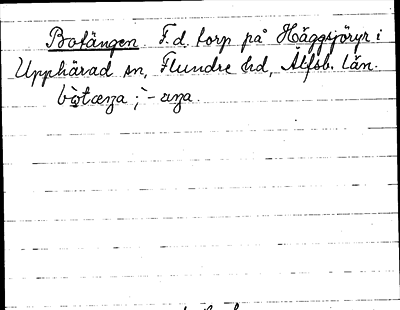 Botängen F.d. torp på Häggsjöryr i
Upphärad sn, Flundre hd, Älfsb. län.